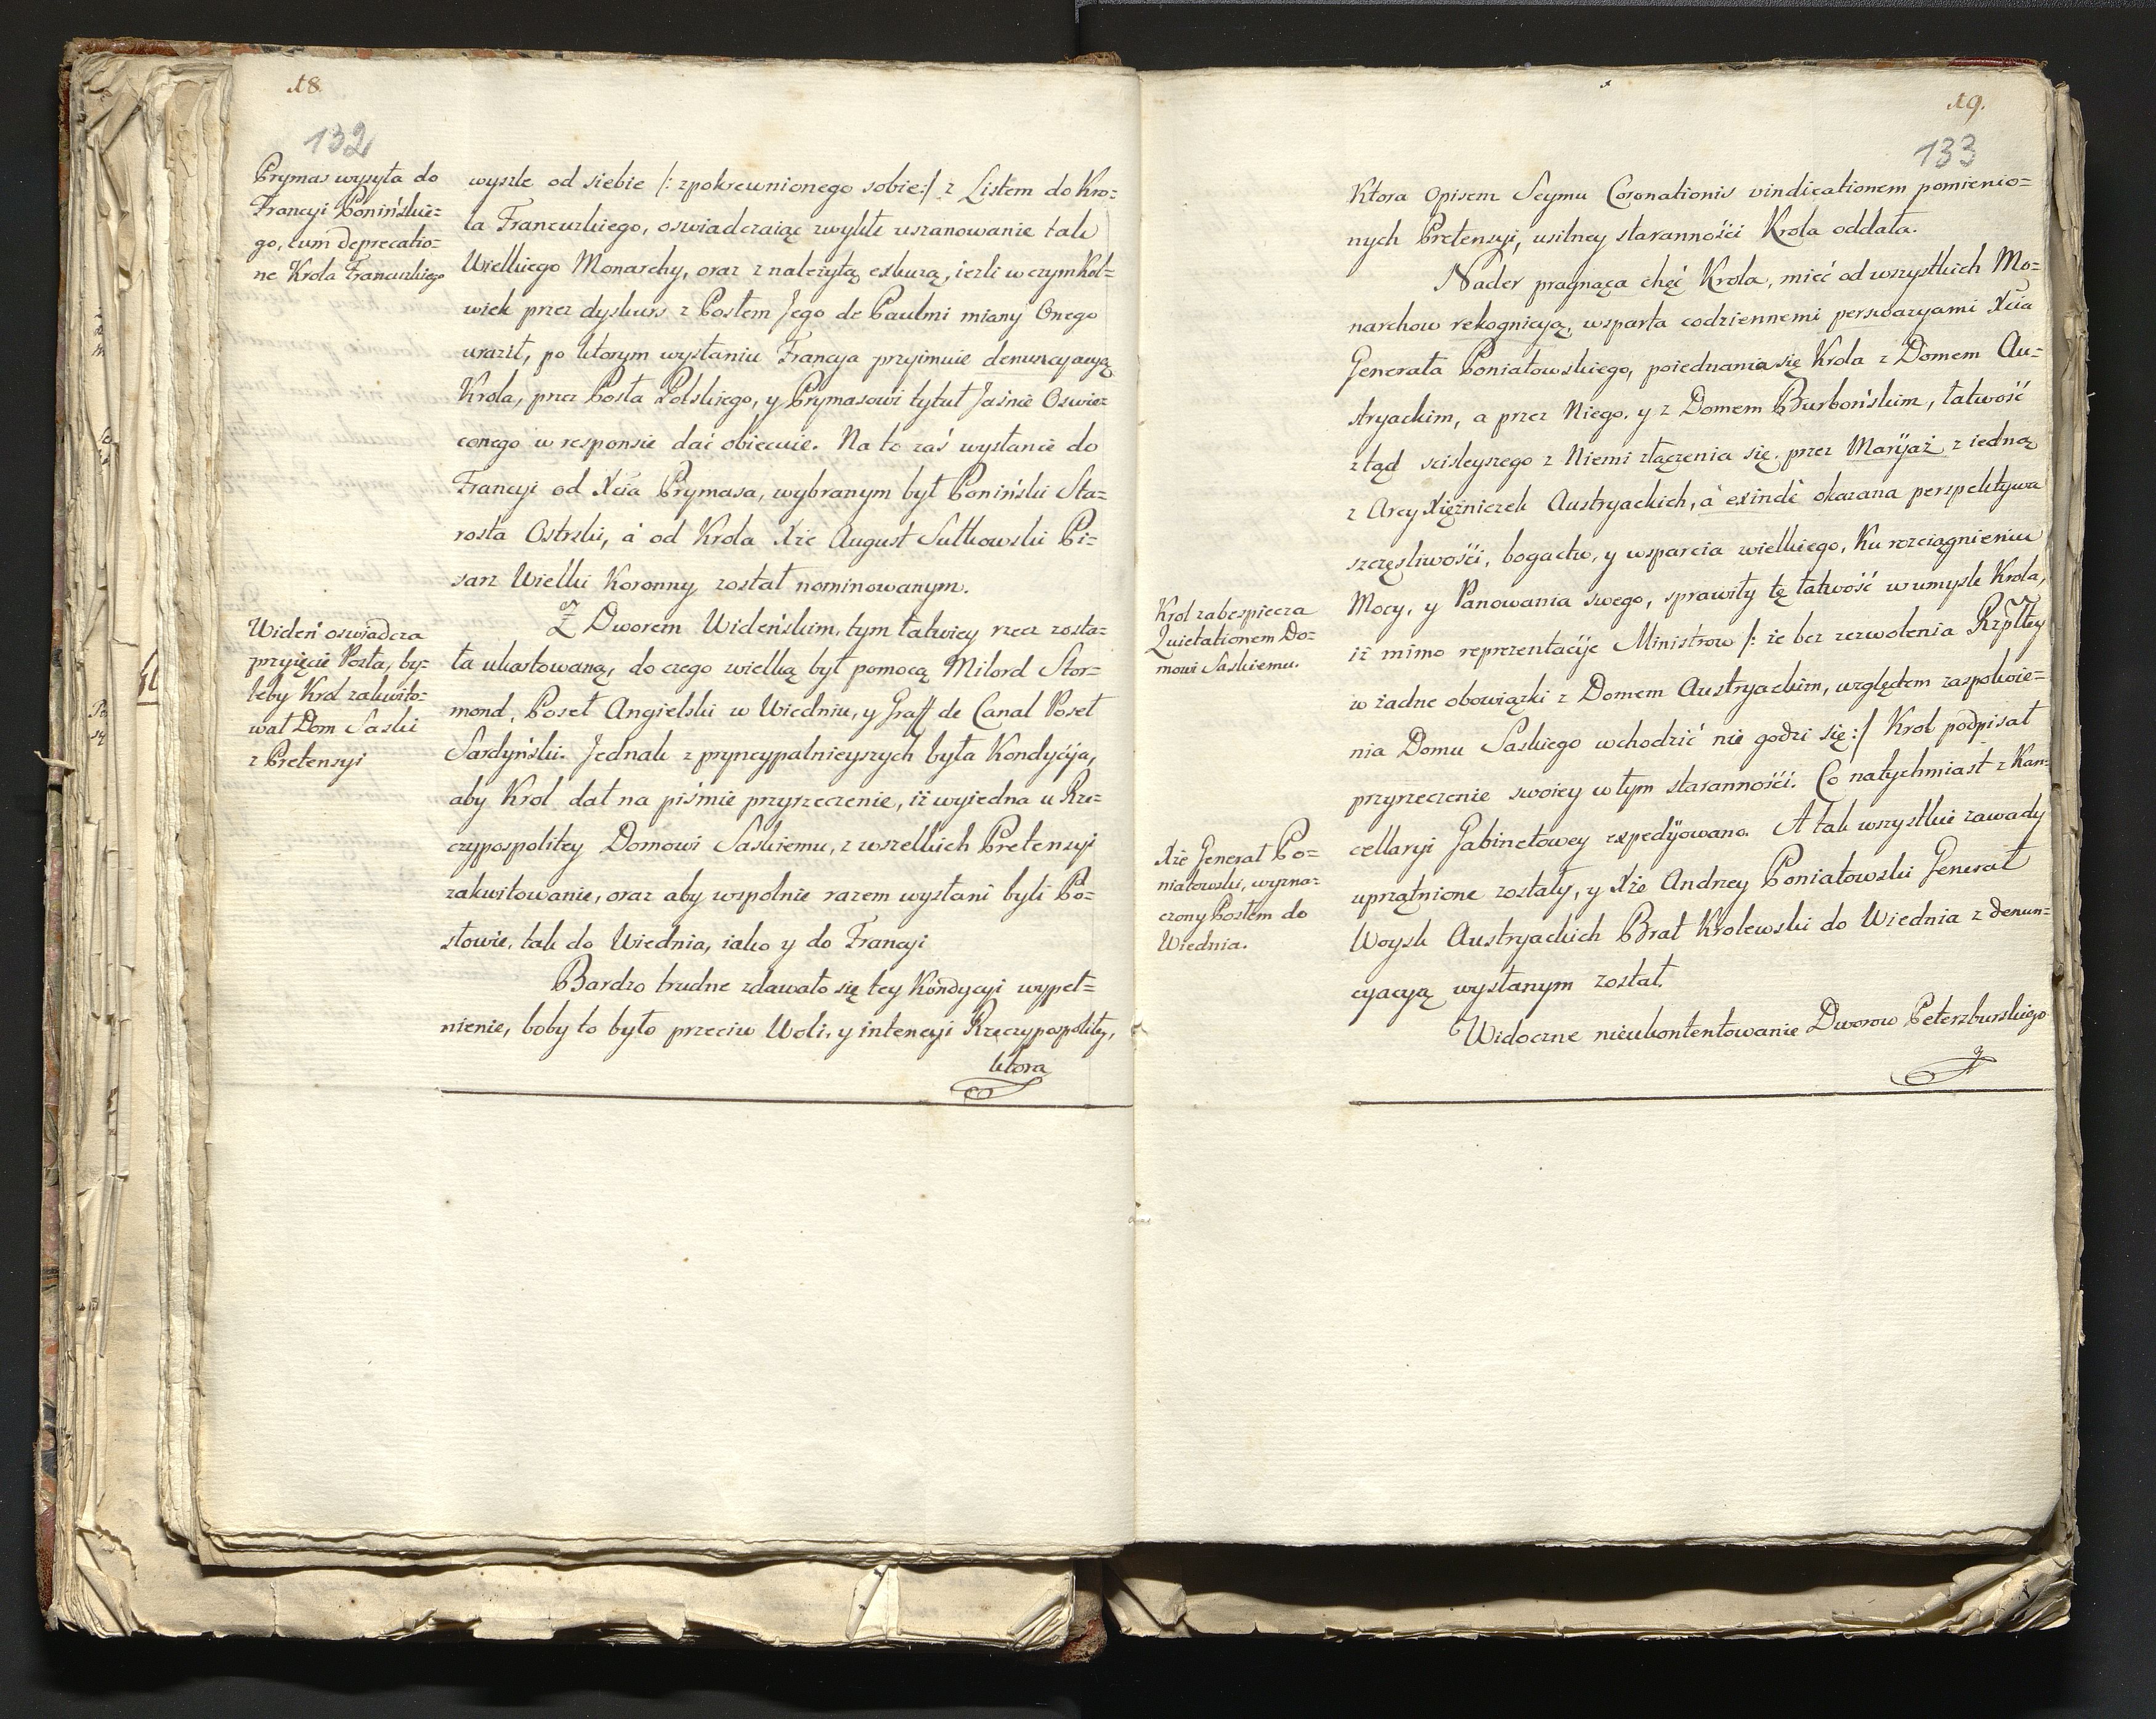 18.
132
Prymas wysyła do
Francyi Poninskie=
go, cum deprecatio=
ne Krola Francuzkiego
wyszle od siebie /: zpokrewnionego sobie:/ z Listem do Kro=
la Francuzkiego, oswiadczaiąc zwykłe uszanowanie tak
Wielkiego Monarchy, oraz z należytą exkuzą, iezli w czymkol=
wiek przez dyskurs z Posłem Jego de Paulmi miany Onego
uraził, po ktorym wysłaniu Francya przyimuie denuncyacyą
Krola, przez Posła Polskiego, y Prymasowi tytuł Jaśnie Oswie=
conego w responsie dać obiecuie. Na to zaś wysłanie do
Francyi od Xcia Prymasa, wybranym był Poniński Sta=
rosta Ostrski, à od Krola Xże August Sułkowski Pi=
sarz Wielki Koronny został nominowanym.
Wideń oswiadcza
przyięcie Posła, by=
leby Krol zakwito=
wał Dom Saski
z Pretensyi
Z Dworem Wideńskim, tym łatwiey rzecz zosta=
ła ukartowaną, do czego wielką był pomocą Milord Stor=
mond, Poseł Angielski w Wiedniu, y Graff de Canal Poseł
Sardyński. Jednak z pryncypalnieyszych była Kondycÿa,
aby Krol dał na piśmie przyrzeczenie, iż wyiedna u Rze=
czypospolitey Domowi Saskiemu, z wszelkich Pretensyi
zakwitowanie, oraz aby wspolnie razem wysłani byli Po=
słowie, tak do Wiednia, iako y do Francyi
Bardzo trudne zdawało się tey Kondycyi wypeł=
nienie, boby to było przeciw Woli, y intencyi Rzeczypospolitey,
ktora
19.
133
Ktora Opisem Seymu Coronationis vindicationem pomienio=
nych Pretensyi, usilney staranności Krola oddała.
Nader pragnąca chęć Krola, mieć od wszystkich Mo=
narchow rekognicyą, wsparta codziennemi perswazyami Xcia
Generała Poniatowskiego, poiednania się Krola z Domem Au=
stryackim, a przez Niego, y z Domem Burbońskim, łatwość
ztąd scisleyszego z Niemi złączenia się, przez Maryaż z iedną
z Arcy Xiężniczek Austryackich, à exindè okazana perspektywa
szczęsliwości, bogactw, y wsparcia wielkiego, Ku rozciągnieniu
Mocy, y Panowania swego, sprawiły tę łatwość w umysle Krola,
iż mimo reprezentacÿe Ministrow /: że bez zezwolenia Rzpltey
w żadne obowiązki z Domem Austryackim, względem zaspokoie=
nia Domu Saskiego wchodzić nie godzi się:/ Krol podpisał
przyrzeczenie swoiey w tym staranności. Co natychmiast z Kan=
cellaryi Gabinetowey expedÿowano. A tak wszystkie zawady
uprzątnione zostały, y Xże Andrzey Poniatowski Generał
Woysk Austryackich Brat Krolewski do Wiednia z denun=
cyacyą wysłanym został.
Krol zabespiecza
Quietationem Do=
mowi Saskiemu.
Xże Generał Po=
niatowski, wyzna=
czony Posłem do
Wiednia.
Widoczne nieukontentowanie Dworow Peterzburskiego
y